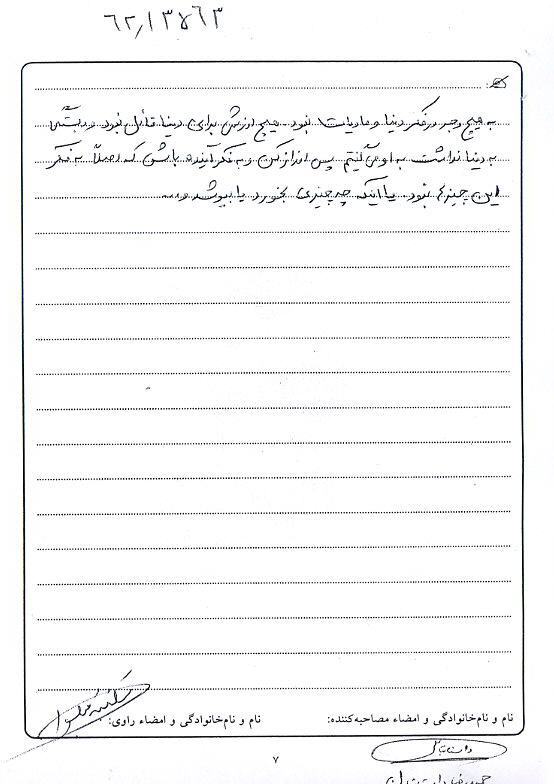 ۶۲,۱۳۷۶۳
به هیچ وجه در فکر دنیا و مادیات نبود. هیچ ارزش برای دنیا قائل نبود و
به دنیا نداشت به او می گفتیم پس انداز کن و به فکر آینده باش که اصلاً به فکر
این چیزها نبود. یا اینکه چه چیزی بخورد یا بپوشد و...
نام و نام‌خانوادگی و امضاء مصاحبه‌کننده:
نام و نام‌خانوادگی و امضاء راوی:
۷